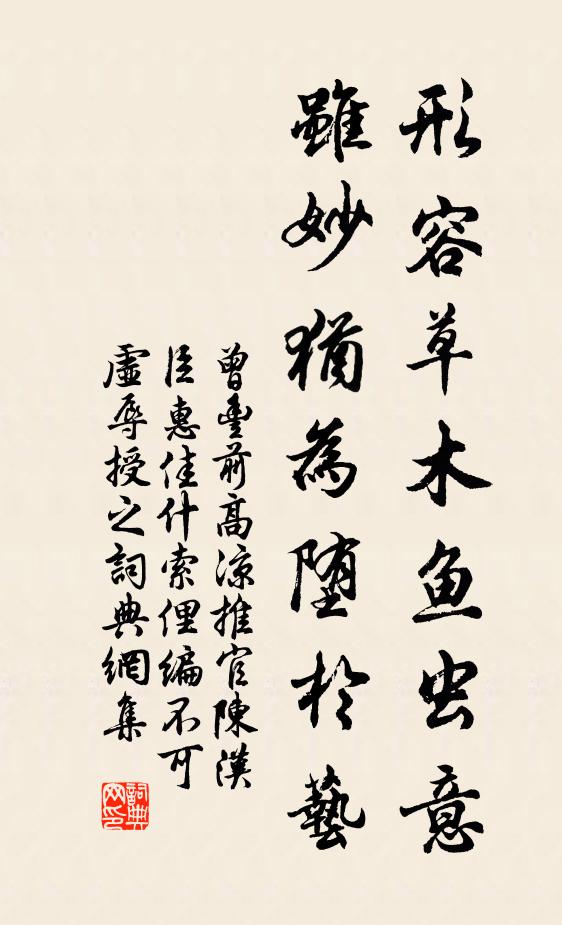 形容草木鱼虫意
雖妙猶為堕於藝
曾豊前高凉推官陳漢
臣惠佳什索俚編不可
虛辱授之詞典網集
詞典
网印